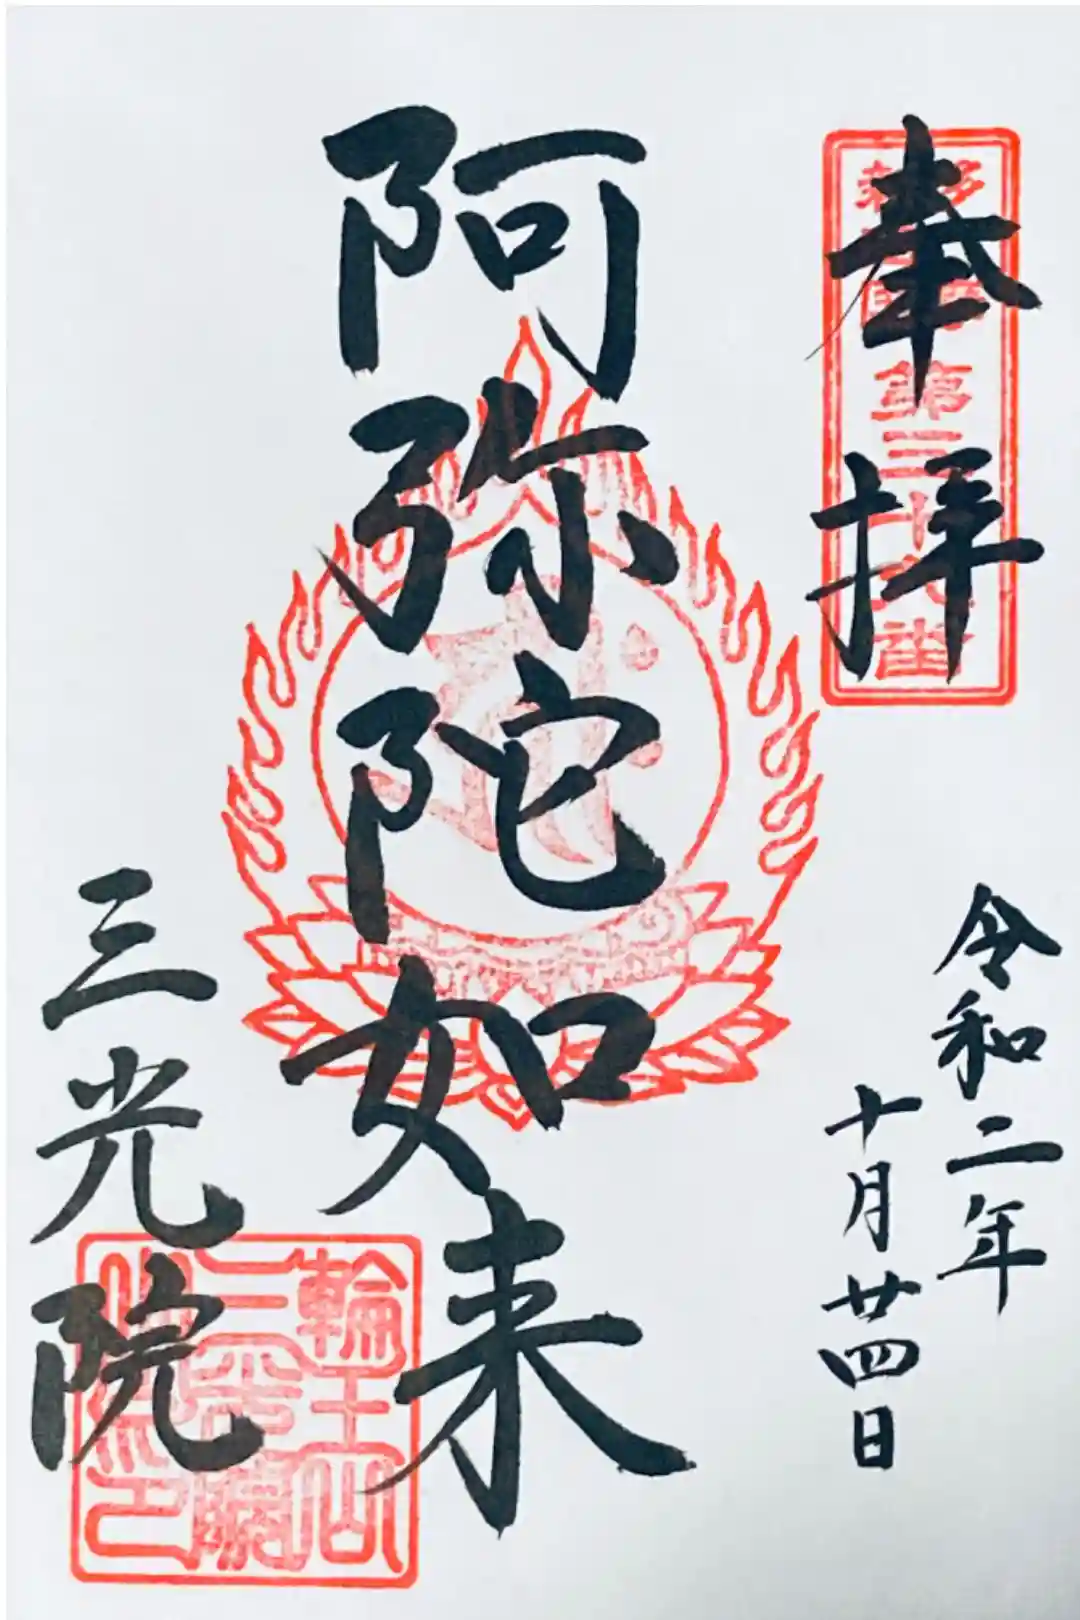 奉拝
第三十
番
令和二年
十月廿四日
阿弥陀如来
三光院
輪王山